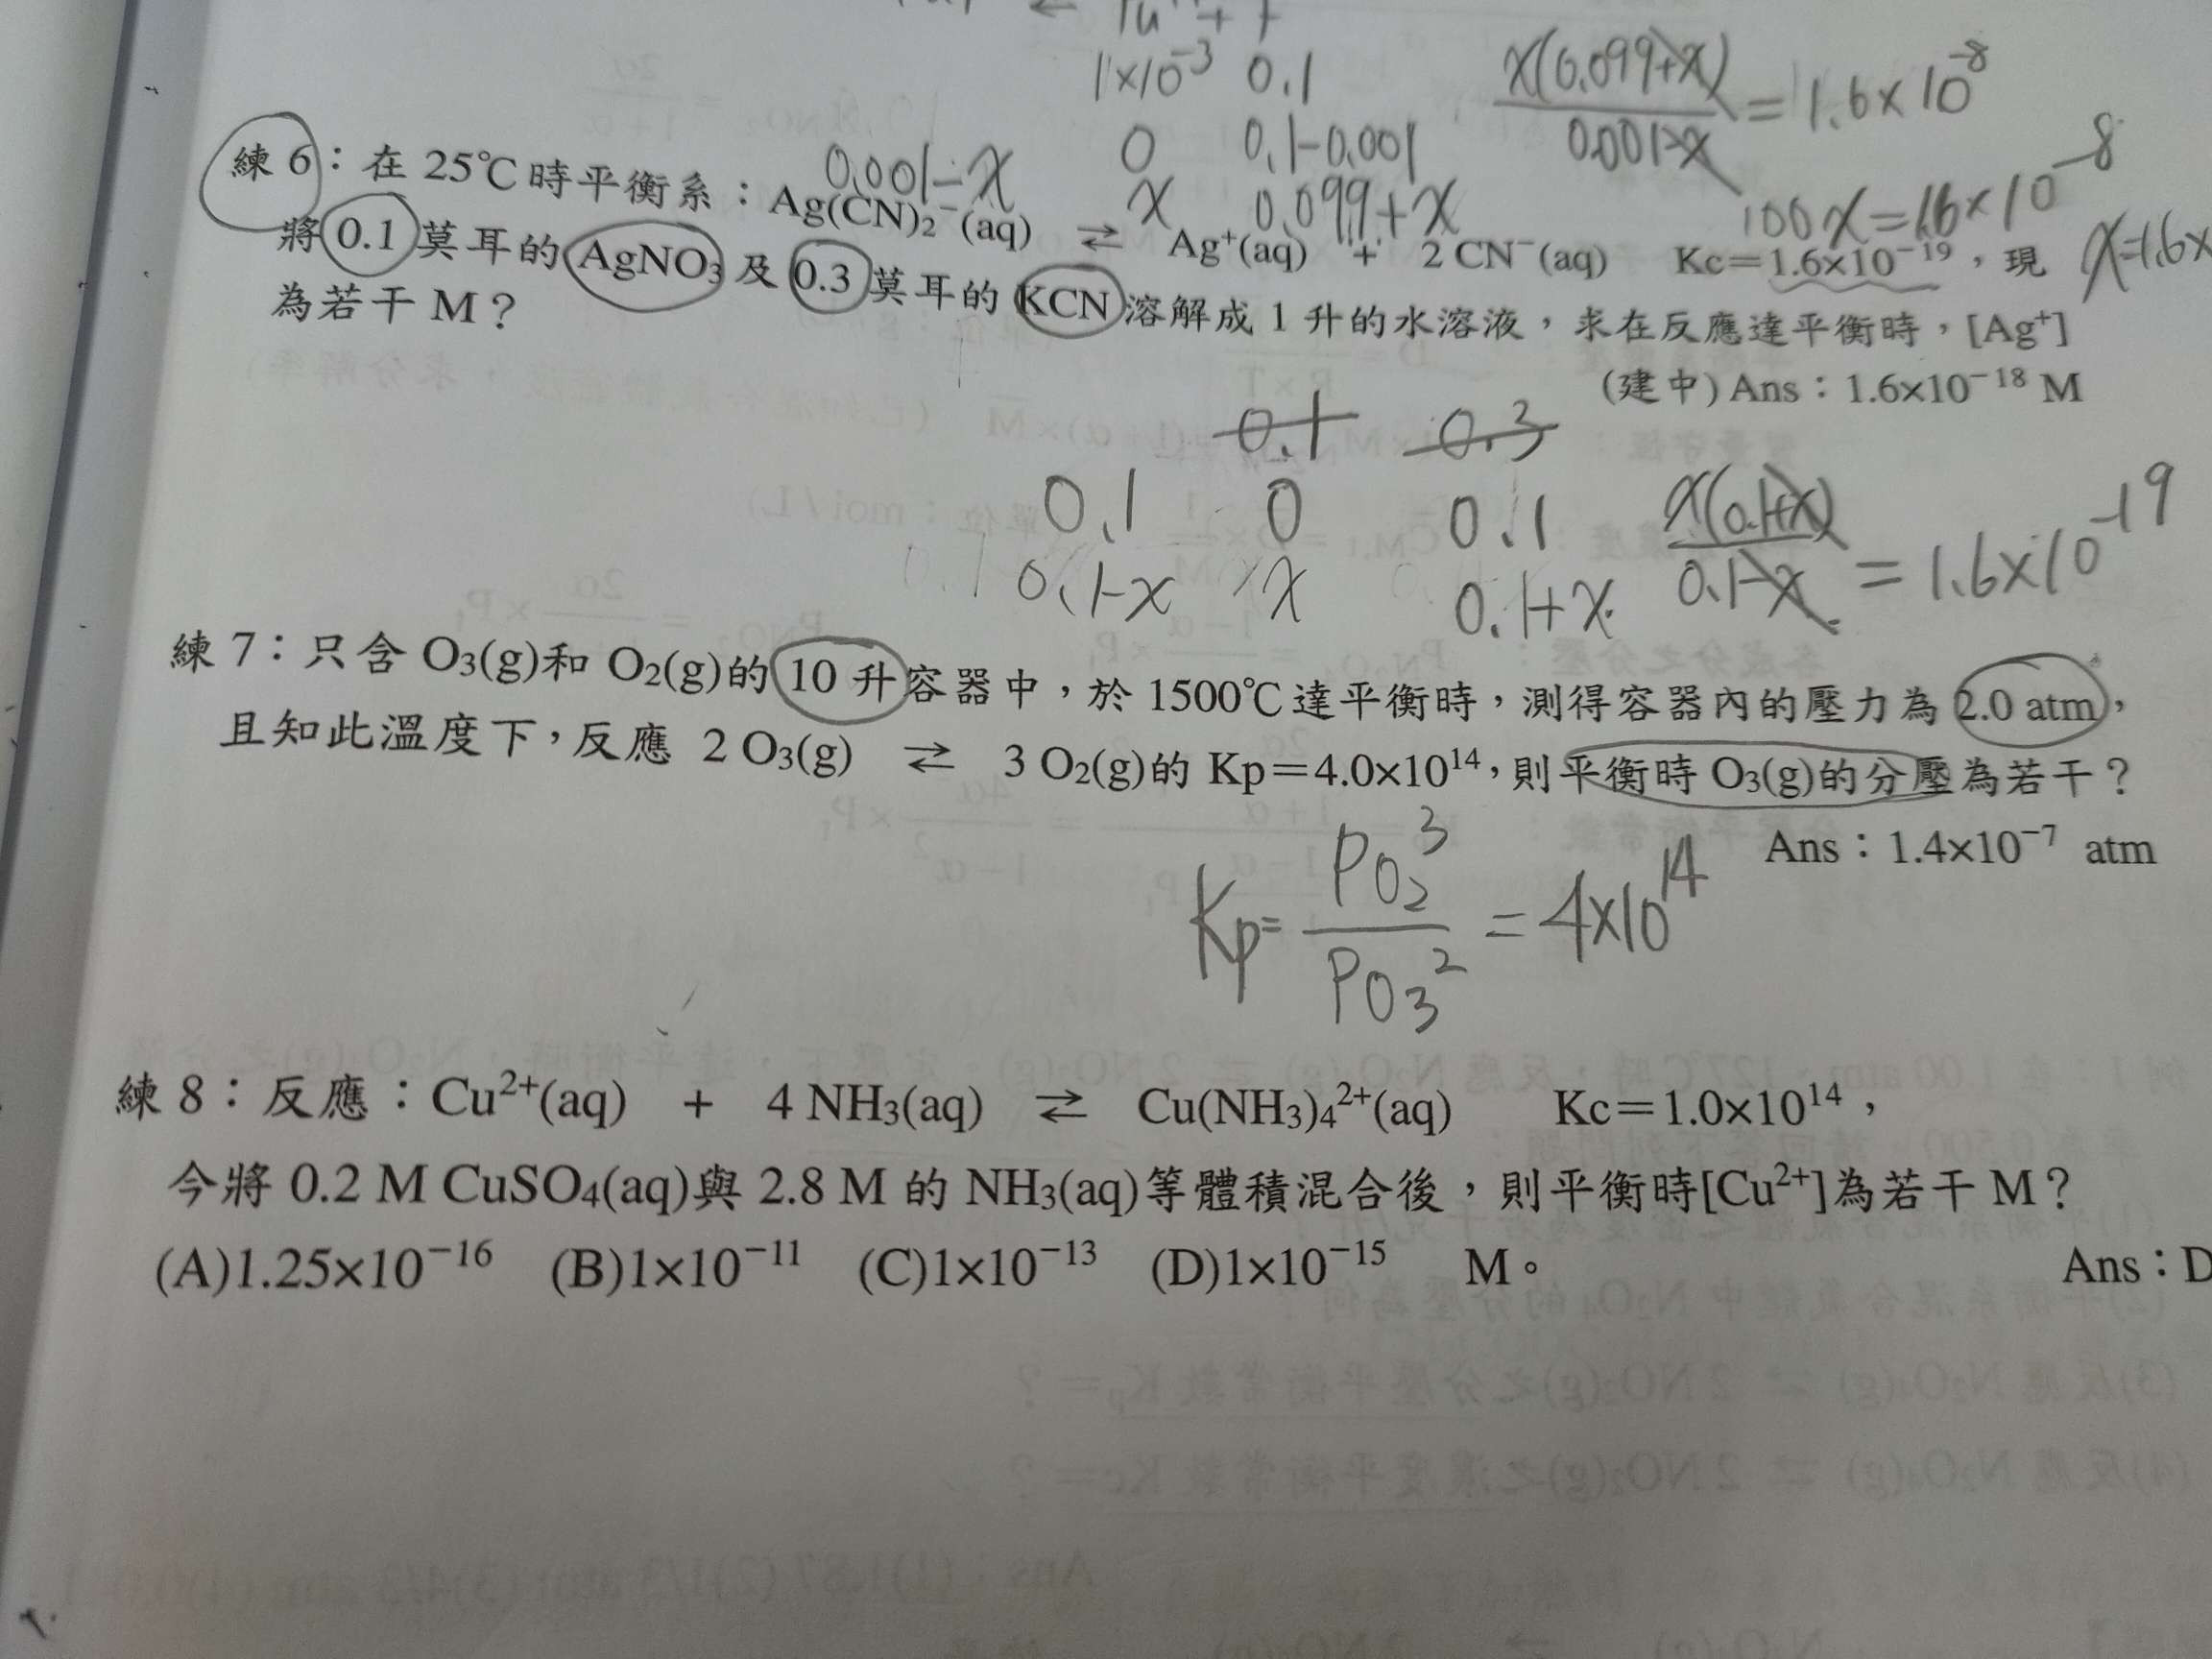 1×10⁻³ 0.1
0 0.1-0.001
x(0.099+x) / 0.001-x = 1.6×10⁻⁸
0.001-x x 0.099+x
100x=1.6×10⁻⁸
練 6：在 25℃時平衡系：Ag(CN)₂⁻(aq) ⇄ Ag⁺(aq) + 2 CN⁻(aq) Kc＝1.6×10⁻¹⁹，現
將 0.1 莫耳的 AgNO₃ 及 0.3 莫耳的 KCN 溶解成 1 升的水溶液，求在反應達平衡時，[Ag⁺]
為若干 M？
(建中) Ans：1.6×10⁻¹⁸ M
0.1 0.3
0.1 0 0.1
0.1-x x 0.1+x
x(0.1+x) / 0.1-x = 1.6×10⁻¹⁹
練 7：只含 O₃(g)和 O₂(g)的 10 升容器中，於 1500℃達平衡時，測得容器內的壓力為 2.0 atm，
且知此溫度下，反應 2 O₃(g) ⇄ 3 O₂(g)的 Kp＝4.0×10¹⁴，則平衡時 O₃(g)的分壓為若干？
Ans：1.4×10⁻⁷ atm
Kp= PO₂³ / PO₃² = 4×10¹⁴
練 8：反應：Cu²⁺(aq) + 4 NH₃(aq) ⇄ Cu(NH₃)₄²⁺(aq) Kc＝1.0×10¹⁴，
今將 0.2 M CuSO₄(aq)與 2.8 M 的 NH₃(aq)等體積混合後，則平衡時[Cu²⁺]為若干 M？
(A)1.25×10⁻¹⁶ (B)1×10⁻¹¹ (C)1×10⁻¹³ (D)1×10⁻¹⁵ M。
Ans：D